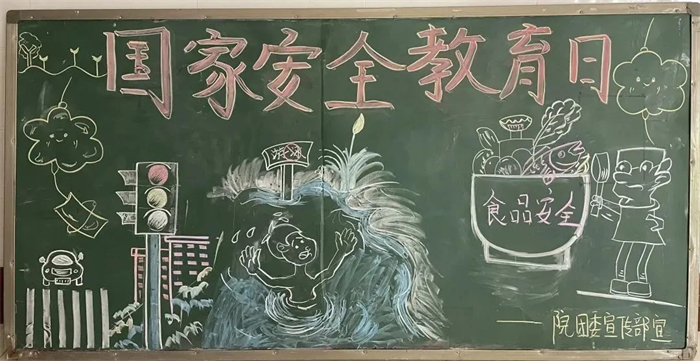 国家安全教育日
食品安全
——院团委宣传部宣